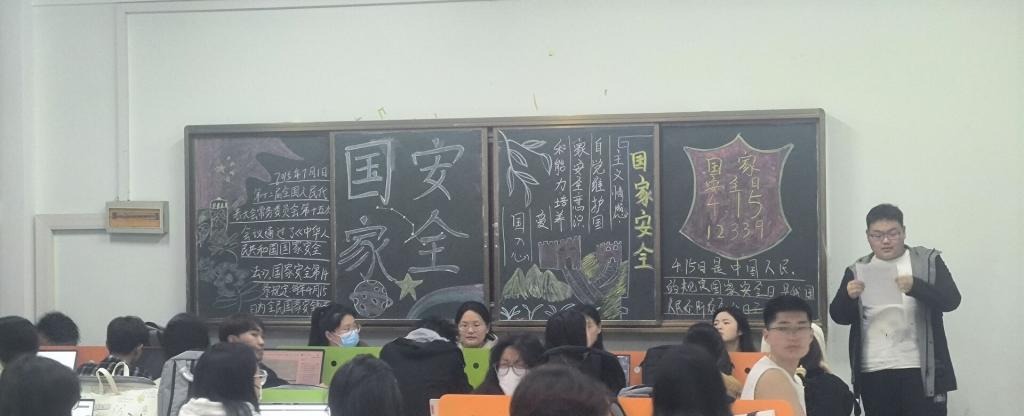 2015年7月1日
第十二届全国人民代
表大会常务委员会第十五次
会议通过了《中华人
民共和国国家安全
法》，国家安全第14
条规定每年4月15
日为全民国家安全教
国
家
安
全
主义情感
自觉维护国
家安全意识
和能力培养
爱
国之心
国家安全
国家
安全日
4 15
12339
4.15日是中国人民